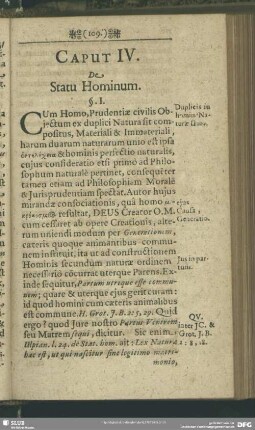 (109.)
CAPUT IV.
De
Statu Hominum.
§. I.
CUm Homo, Prudentiæ civilis Ob-
jectum ex duplici Natura sit com-
positus, Materiali & Immateriali,
harum duarum naturarum unio est ipsa
& hominis perfectio naturalis,
cujus consideratio etsi primò ad Philo-
sophum naturalē pertinet, consequēter
tamen etiam ad Philosophiam Moralē
& Jurisprudentiam spectat. Autor hujus
mirandæ consociationis, quâ homo
resultat, DEUS Creator O.M.
cum cessaret ab opere Creationis, alte-
rum uniendi modum per Generationem,
cæteris quoque animantibus commu-
nem instituit, ita ut ad constructionem
Hominis secundum naturæ ordinem
necessariò cōcurrat uterque Parens. Ex-
inde sequitur, Partum utrique esse commu-
nem; quare & uterque ejus gerit curam:
id quod homini cum cæteris animalibus
est commune. H. Grot. J. B. 215, 29: Quid
ergo? quod Jure nostro Partus Ventrem
seu Matrem sequi, dicitur. Sic enim
Ulpian. l. 24. de Stat. hom. ait: Lex Naturæ
hæc est, ut qui nascitur sine legitimo matri-
monio,
Duplicis in
homine Na-
turæ
ejus
Causa,
Generatio.
Jus in par-
tum.
QV.
inter JC. &
Grot. J. B.
SLUB
DFG